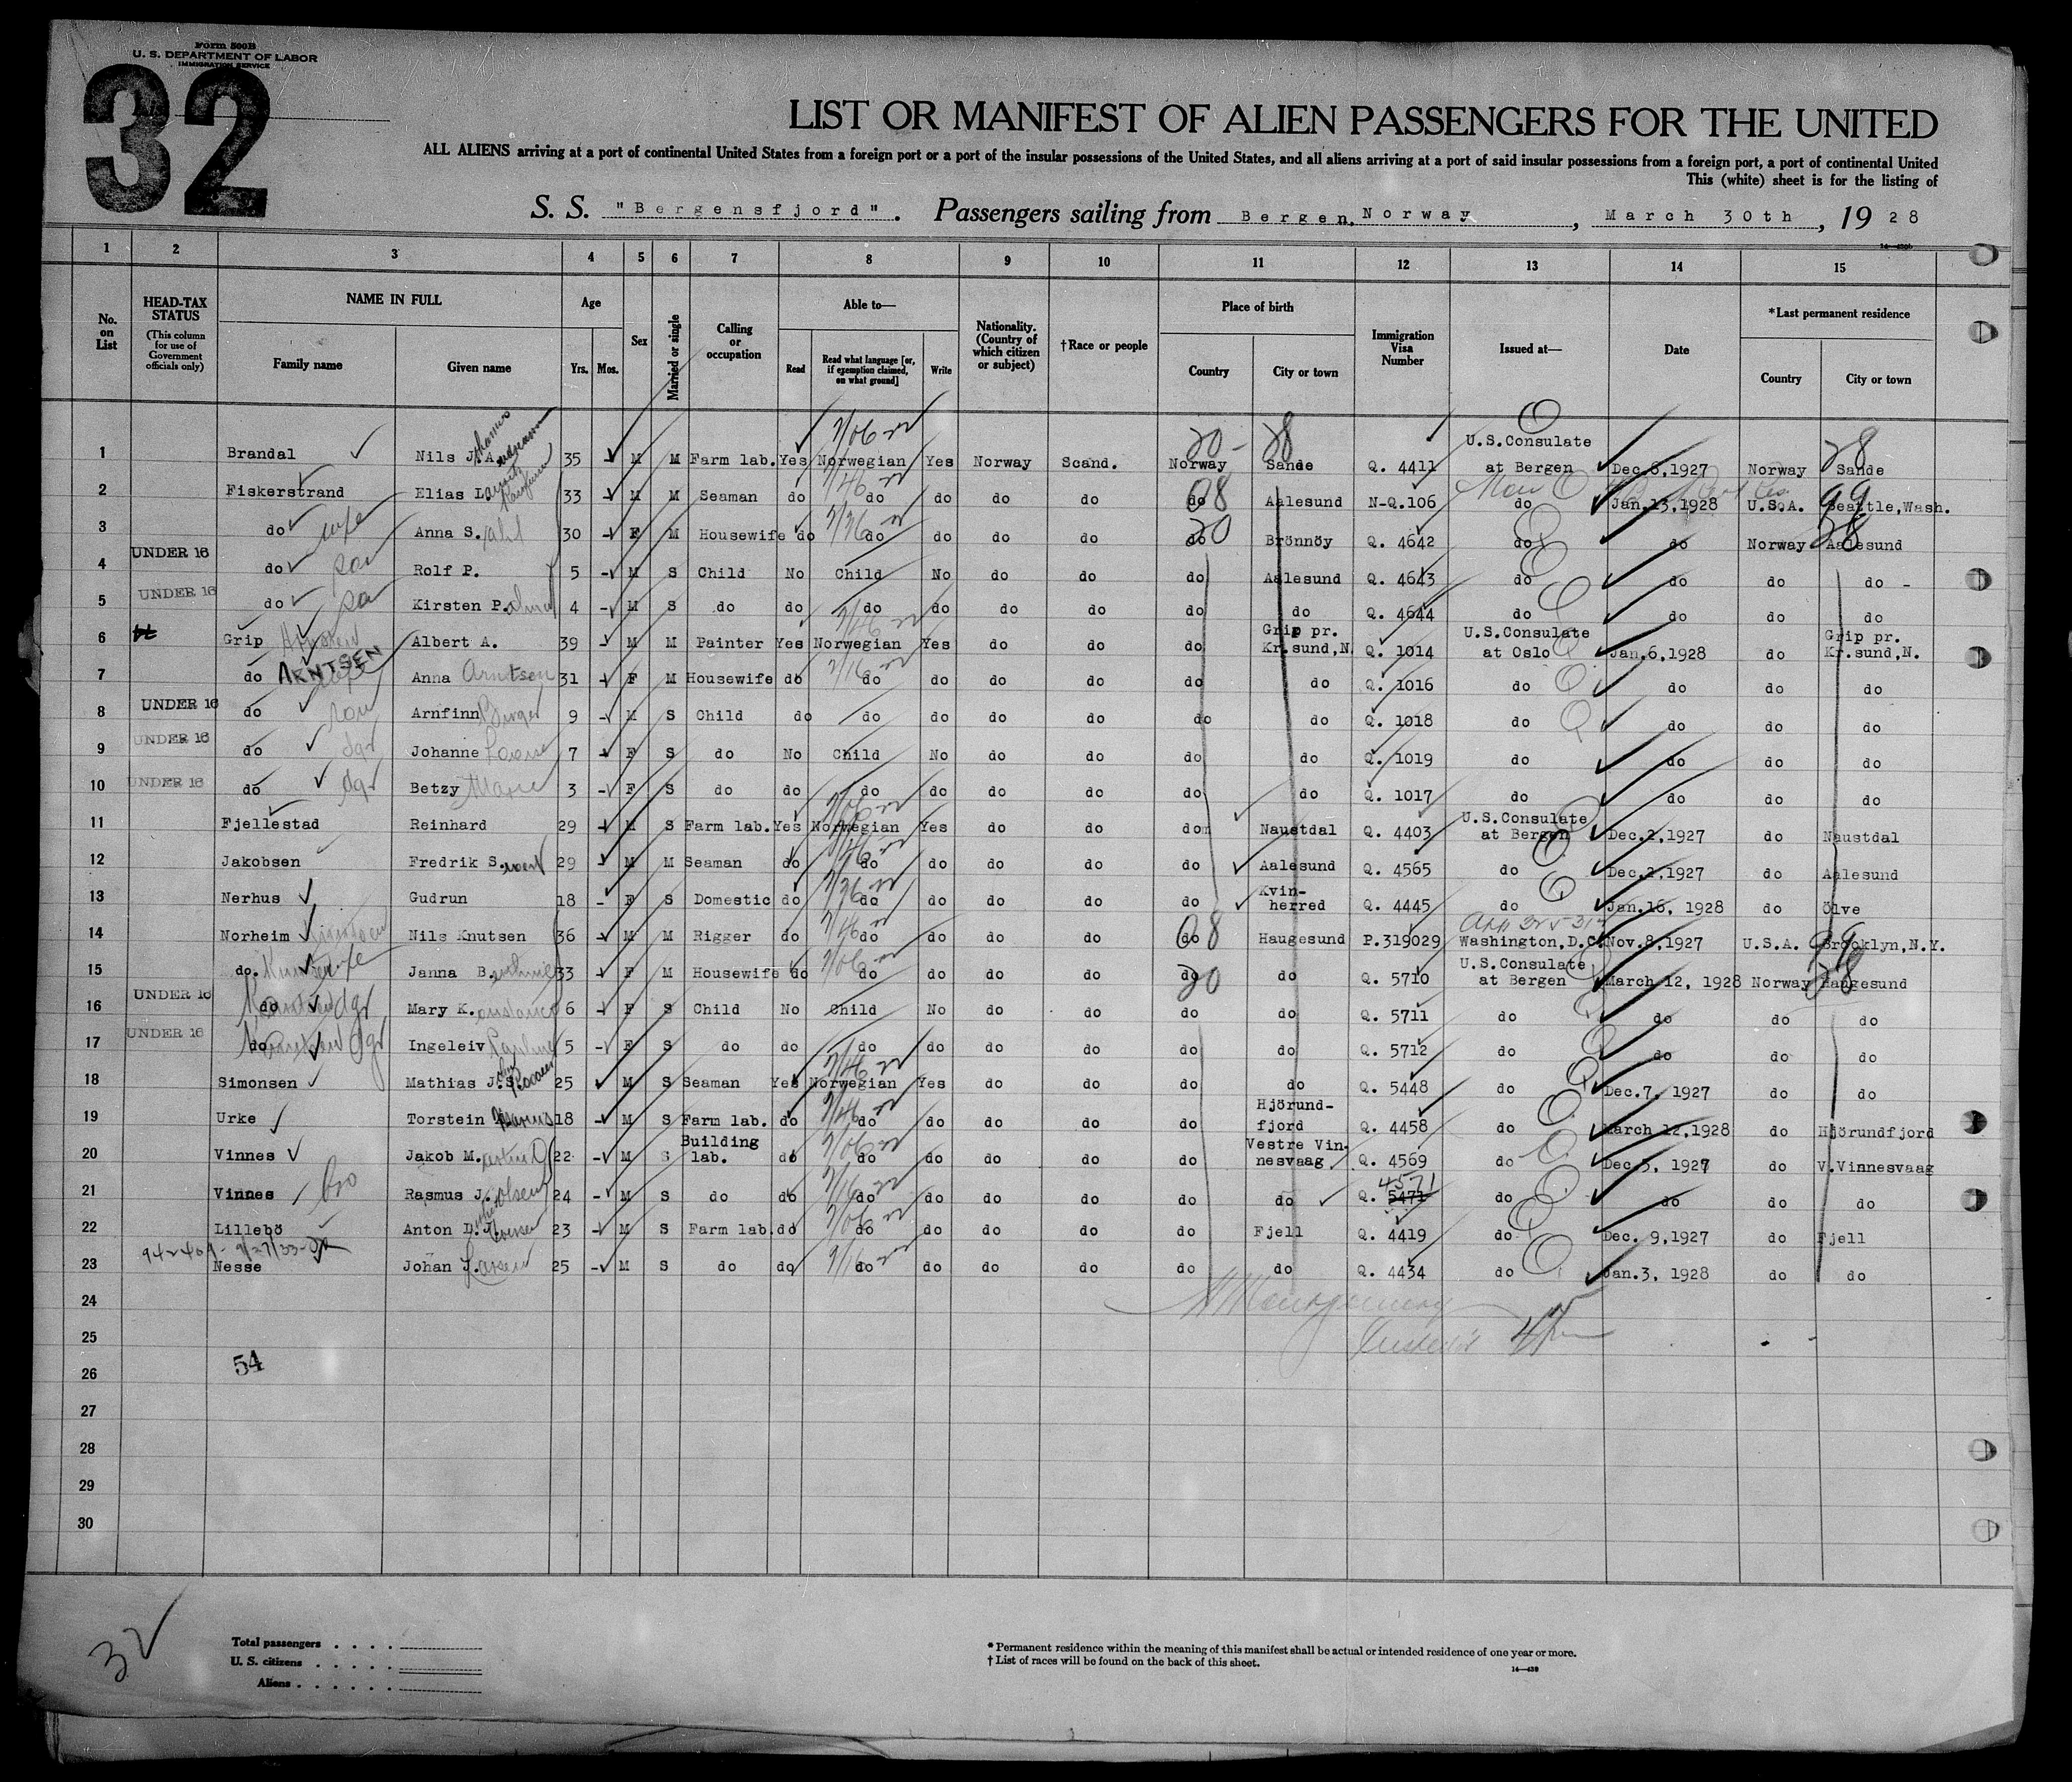 Form 500B
U. S. DEPARTMENT OF LABOR
IMMIGRATION SERVICE
32
LIST OR MANIFEST OF ALIEN PASSENGERS FOR THE UNITED
ALL ALIENS arriving at a port of continental United States from a foreign port or a port of the insular possessions of the United States, and all aliens arriving at a port of said insular possessions from a foreign port, a port of continental United
This (white) sheet is for the listing of
S. S. "Bergensfjord". Passengers sailing from Bergen, Norway, March 30th, 1928
1 2 3 4 5 6 7 8 9 10 11 12 13 14 15
No. on List
HEAD-TAX STATUS (This column for use of Government officials only)
NAME IN FULL Family name Given name
Age Yrs. Mos.
Sex
Married or single
Calling or occupation
Able to— Read Read what language [or, if exemption claimed, on what ground] Write
Nationality. (Country of which citizen or subject)
†Race or people
Place of birth Country City or town
Immigration Visa Number
Issued at—
Date
*Last permanent residence Country City or town
1 Brandal Nils J. A. 35 - M M Farm lab. Yes Norwegian Yes Norway Scand. Norway Sande Q. 4411 U.S.Consulate at Bergen Dec.6,1927 Norway Sande
2 Fiskerstrand Elias L 33 - M M Seaman do do do do do do Aalesund N-Q.106 do Jan.13,1928 U.S.A. Seattle,Wash.
3 do wife Anna S. 30 - F M Housewife do do do do do do Brönnöy Q. 4642 do do Norway Aalesund
4 UNDER 16 do son Rolf P. 5 - M S Child No Child No do do do Aalesund Q. 4643 do do do do -
5 UNDER 16 do son Kirsten P. 4 - M S do do do do do do do do Q. 4644 do do do do
6 Grip Albert A. 39 - M M Painter Yes Norwegian Yes do do do Grip pr. Kr.sund,N. Q. 1014 U.S.Consulate at Oslo Jan.6,1928 do Grip pr. Kr.sund,N.
7 do ARNTSEN wife Anna Arntsen 31 - F M Housewife do do do do do do do Q. 1016 do do do do
8 UNDER 16 do son Arnfinn Birger 9 - M S Child do do do do do do do Q. 1018 do do do do
9 UNDER 16 do dgr Johanne 7 - F S do No Child No do do do do Q. 1019 do do do do
10 UNDER 16 do dgr Betzy Marie 3 - F S do do do do do do do do Q. 1017 do do do do
11 Fjellestad Reinhard 29 - M S Farm lab. Yes Norwegian Yes do do do Naustdal Q. 4403 U.S.Consulate at Bergen Dec.2,1927 do Naustdal
12 Jakobsen Fredrik S. 29 - M M Seaman do do do do do do Aalesund Q. 4565 do Dec.2,1927 do Aalesund
13 Nerhus Gudrun 18 - F S Domestic do do do do do do Kvin-herred Q. 4445 do Jan.16, 1928 do Ölve
14 Norheim Nils Knutsen 36 - M M Rigger do do do do do do Haugesund P.319029 Washington,D.C. Nov.8,1927 U.S.A. Brooklyn,N.Y.
15 do. wife Janna B. 33 - F M Housewife do do do do do do do Q. 5710 U.S.Consulate at Bergen March 12, 1928 Norway Haugesund
16 UNDER 16 do dgr Mary K. 6 - F S Child No Child No do do do do Q. 5711 do do do do
17 UNDER 16 do dgr Ingeleiv Pauline 5 - F S do do do do do do do do Q. 5712 do do do do
18 Simonsen Mathias J.S. 25 M S Seaman Yes Norwegian Yes do do do do Q. 5448 do Dec.7, 1927 do do
19 Urke Torstein 18 - M S Farm lab. do do do do do do Hjörund-fjord Q. 4458 do March 12,1928 do Hjörundfjord
20 Vinnes Jakob M. 22 - M S Building lab. do do do do do do Vestre Vin-nesvaag Q. 4569 do Dec.5, 1927 do V.Vinnesvaag
21 Vinnes bro Rasmus J. 24 - M S do do do do do do do do Q. 5471 4571 do do do do
22 Lillebö Anton D.J. 23 - M S Farm lab. do do do do do do Fjell Q. 4419 do Dec. 9,1927 do Fjell
23 Nesse Johan Larsen 25 - M S do do do do do do do do Q. 4434 do Jan.3, 1928 do do
24
25
26 54
27
28
29
30
32
Total passengers . . . .
U. S. citizens . . . . .
Aliens . . . . . .
* Permanent residence within the meaning of this manifest shall be actual or intended residence of one year or more.
† List of races will be found on the back of this sheet.
14—439